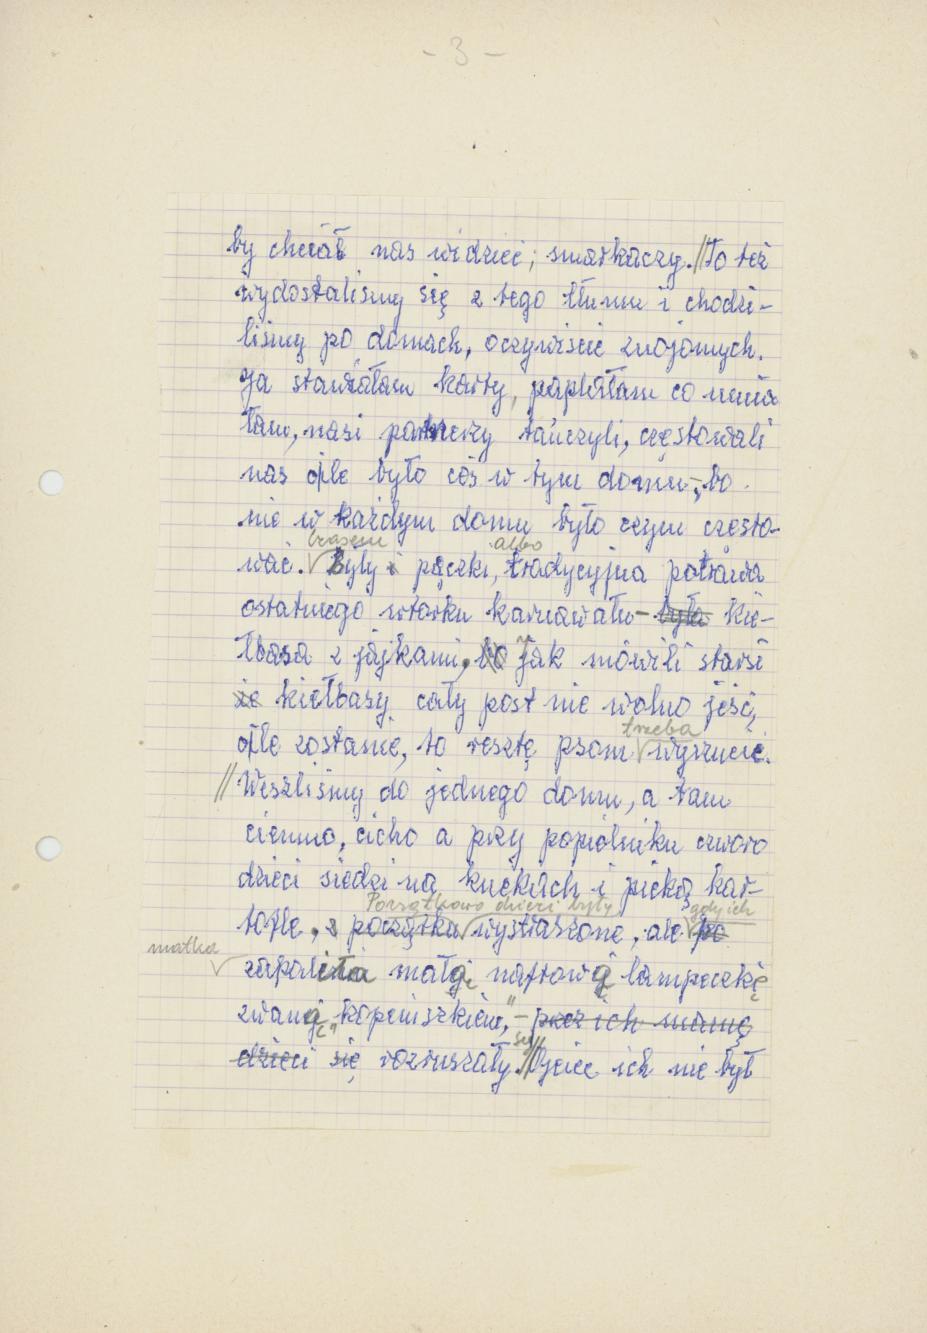 - 3 -
by chciał nas widzieć; smarkaczy. // To też
wydostaliśmy się z tego tłumu i chodzi-
liśmy po domach, oczywiście znajomych.
Ja stawiałam karty, paplałam co umia
łam, nasi partnerzy tańczyli, częstowali
nas o ile było coś w tym domu -, bo
nie w każdym domu było czym często-
czasem albo
wać. Były i pączki, tradycyjna potrawa
ostatniego wtorku karnawału - była kie-
łbasa z jajkami, bo jak mówili starsi
że kiełbasy cały post nie wolno jeść,
trzeba
o ile zostanie, to resztę psom wyrzucić.
// Weszliśmy do jednego domu, a tam
ciemno, cicho a przy popielniku czworo
dzieci siedzi na kuckach i pieką kar-
Początkowo dzieci były gdy ich
tofle, z początku wystraszone, ale po
matka
zapaliła małą naftową lampeczkę
zwaną "kopciuszkiem", - przez ich mamę
się
dzieci się rozruszały. // Ojciec ich nie był